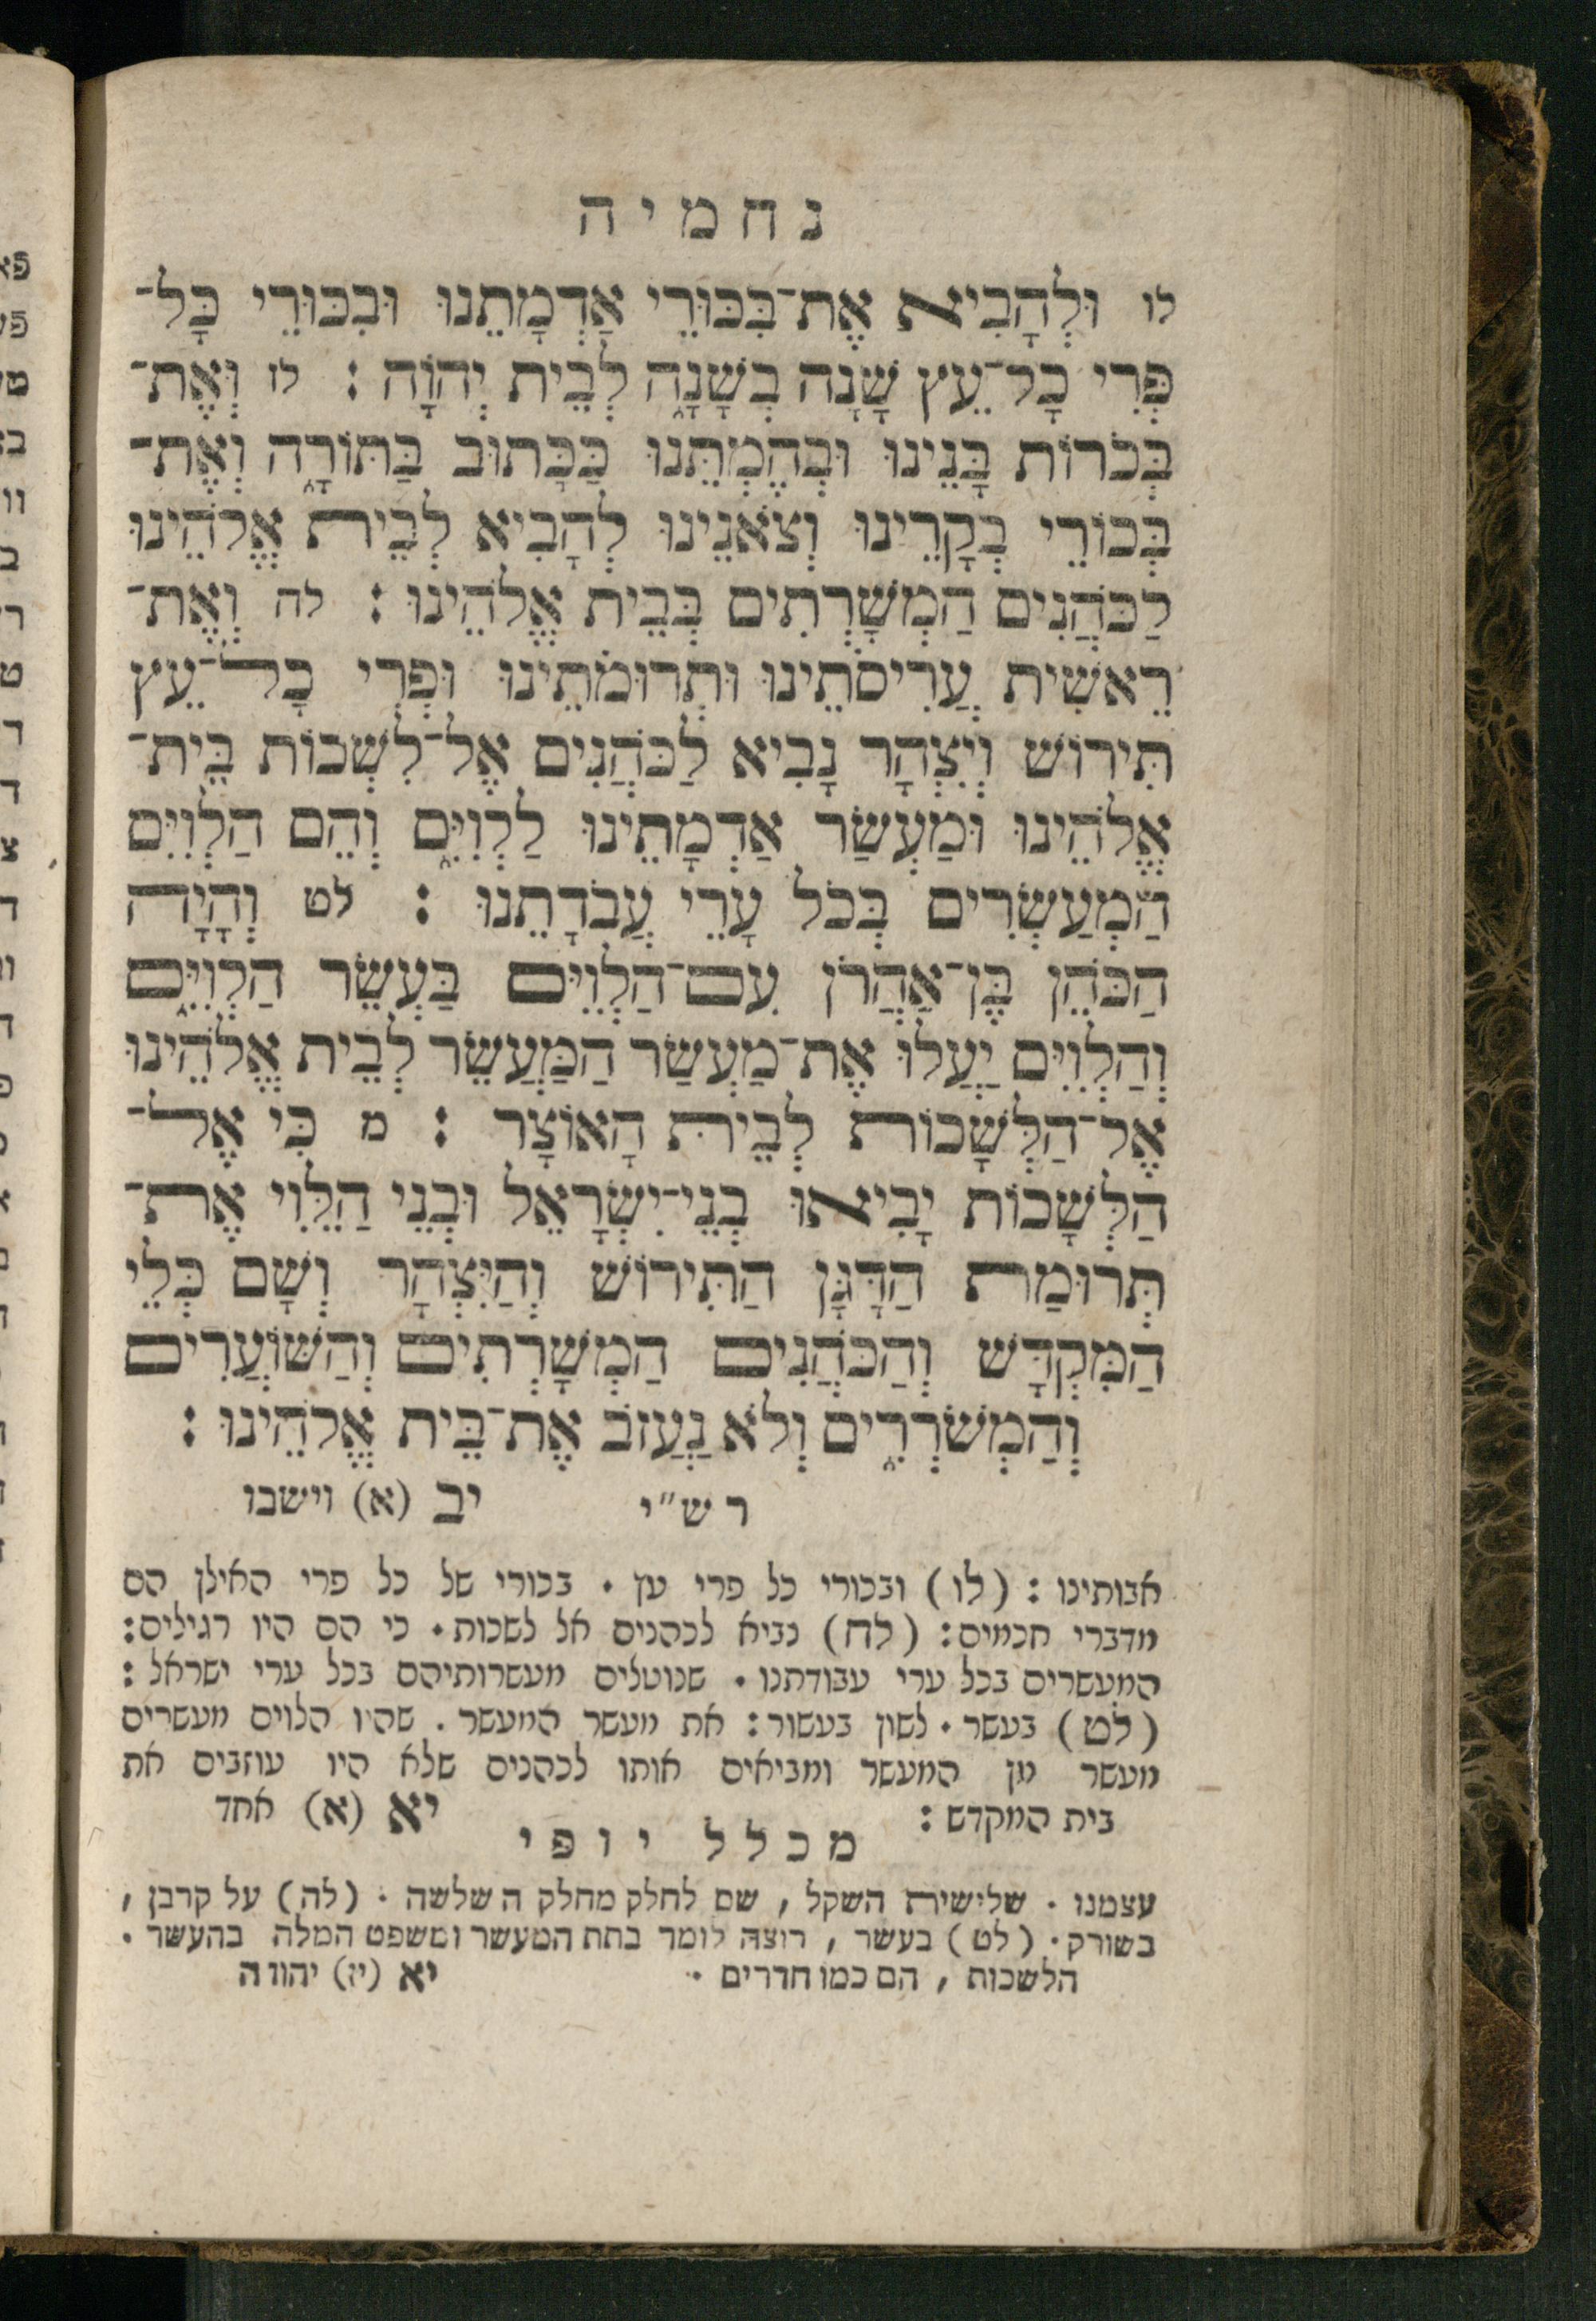 נחמיה
לו וּלְהָבִיא אֶת־בִּכּוּרֵי אַדְמָתֵנוּ וּבִכּוּרֵי כָּל־
פְּרִי כָל־עֵץ שָׁנָה בְשָׁנָה לְבֵית יְהוָֹה : לז וְאֶת־
בְּכֹרוֹת בָּנֵינוּ וּבְהֶמְתֵּנוּ כַּכָּתוּב בַּתּוֹרָה וְאֶת־
בְּכוֹרֵי בְקָרֵינוּ וְצֹאנֵינוּ לְהָבִיא לְבֵית אֱלֹהֵינוּ
לַכֹּהֲנִים הַמְשָׁרְתִים בְּבֵית אֱלֹהֵינוּ : לח וְאֶת־
רֵאשִׁית עֲרִיסֹתֵינוּ וּתְרוּמֹתֵינוּ וּפְרִי כָל־עֵץ
תִּירוֹשׁ וְיִצְהָר נָבִיא לַכֹּהֲנִים אֶל־לִשְׁכוֹת בֵּית־
אֱלֹהֵינוּ וּמַעְשַׂר אַדְמָתֵינוּ לַלְוִיִּם וְהֵם הַלְוִיִּם
הַמְעַשְּׂרִים בְּכֹל עָרֵי עֲבֹדָתֵנוּ : לט וְהָיָה
הַכֹּהֵן בֶּן־אַהֲרֹן עִם־הַלְוִיִּם בַּעְשֵׂר הַלְוִיִּם
וְהַלְוִיִּם יַעֲלוּ אֶת־מַעְשַׂר הַמַּעֲשֵׂר לְבֵית אֱלֹהֵינוּ
אֶל־הַלְּשָׁכוֹת לְבֵית הָאוֹצָר : מ כִּי אֶל־
הַלְּשָׁכוֹת יָבִיאוּ בְנֵי־יִשְׂרָאֵל וּבְנֵי הַלֵּוִי אֶת־
תְּרוּמַת הַדָּגָן הַתִּירוֹשׁ וְהַיִּצְהָר וְשָׁם כְּלֵי
הַמִּקְדָּשׁ וְהַכֹּהֲנִים הַמְשָׁרְתִים וְהַשּׁוֹעֲרִים
וְהַמְשֹׁרְרִים וְלֹא נַעֲזֹב אֶת־בֵּית אֱלֹהֵינוּ :
רש״י יב (א) וישבו
אבותינו : (לו) ובכורי כל פרי עץ . בכורי של כל פרי האילן הם
מדברי חכמים : (לח) נביא לכהנים אל לשכות . כי הם היו רגילים :
המעשרים בכל ערי עבודתנו . שנוטלים מעשרותיהם בכל ערי ישראל :
(לט) בעשר . לשון בעשור : את מעשר המעשר . שהיו הלוים מעשרים
מעשר מן המעשר ומביאים אותו לכהנים שלא היו עוזבים את
בית המקדש : יא (א) אחד
מכלל יופי
עצמנו . שלישית השקל , שם לחלק מחלק השלשה . (לה) על קרבן ,
בשורק . (לט) בעשר , רוצה לומר בתת המעשר ומשפט המלה בהעשר .
הלשכות , הם כמו חדרים . יא (יז) יהודה